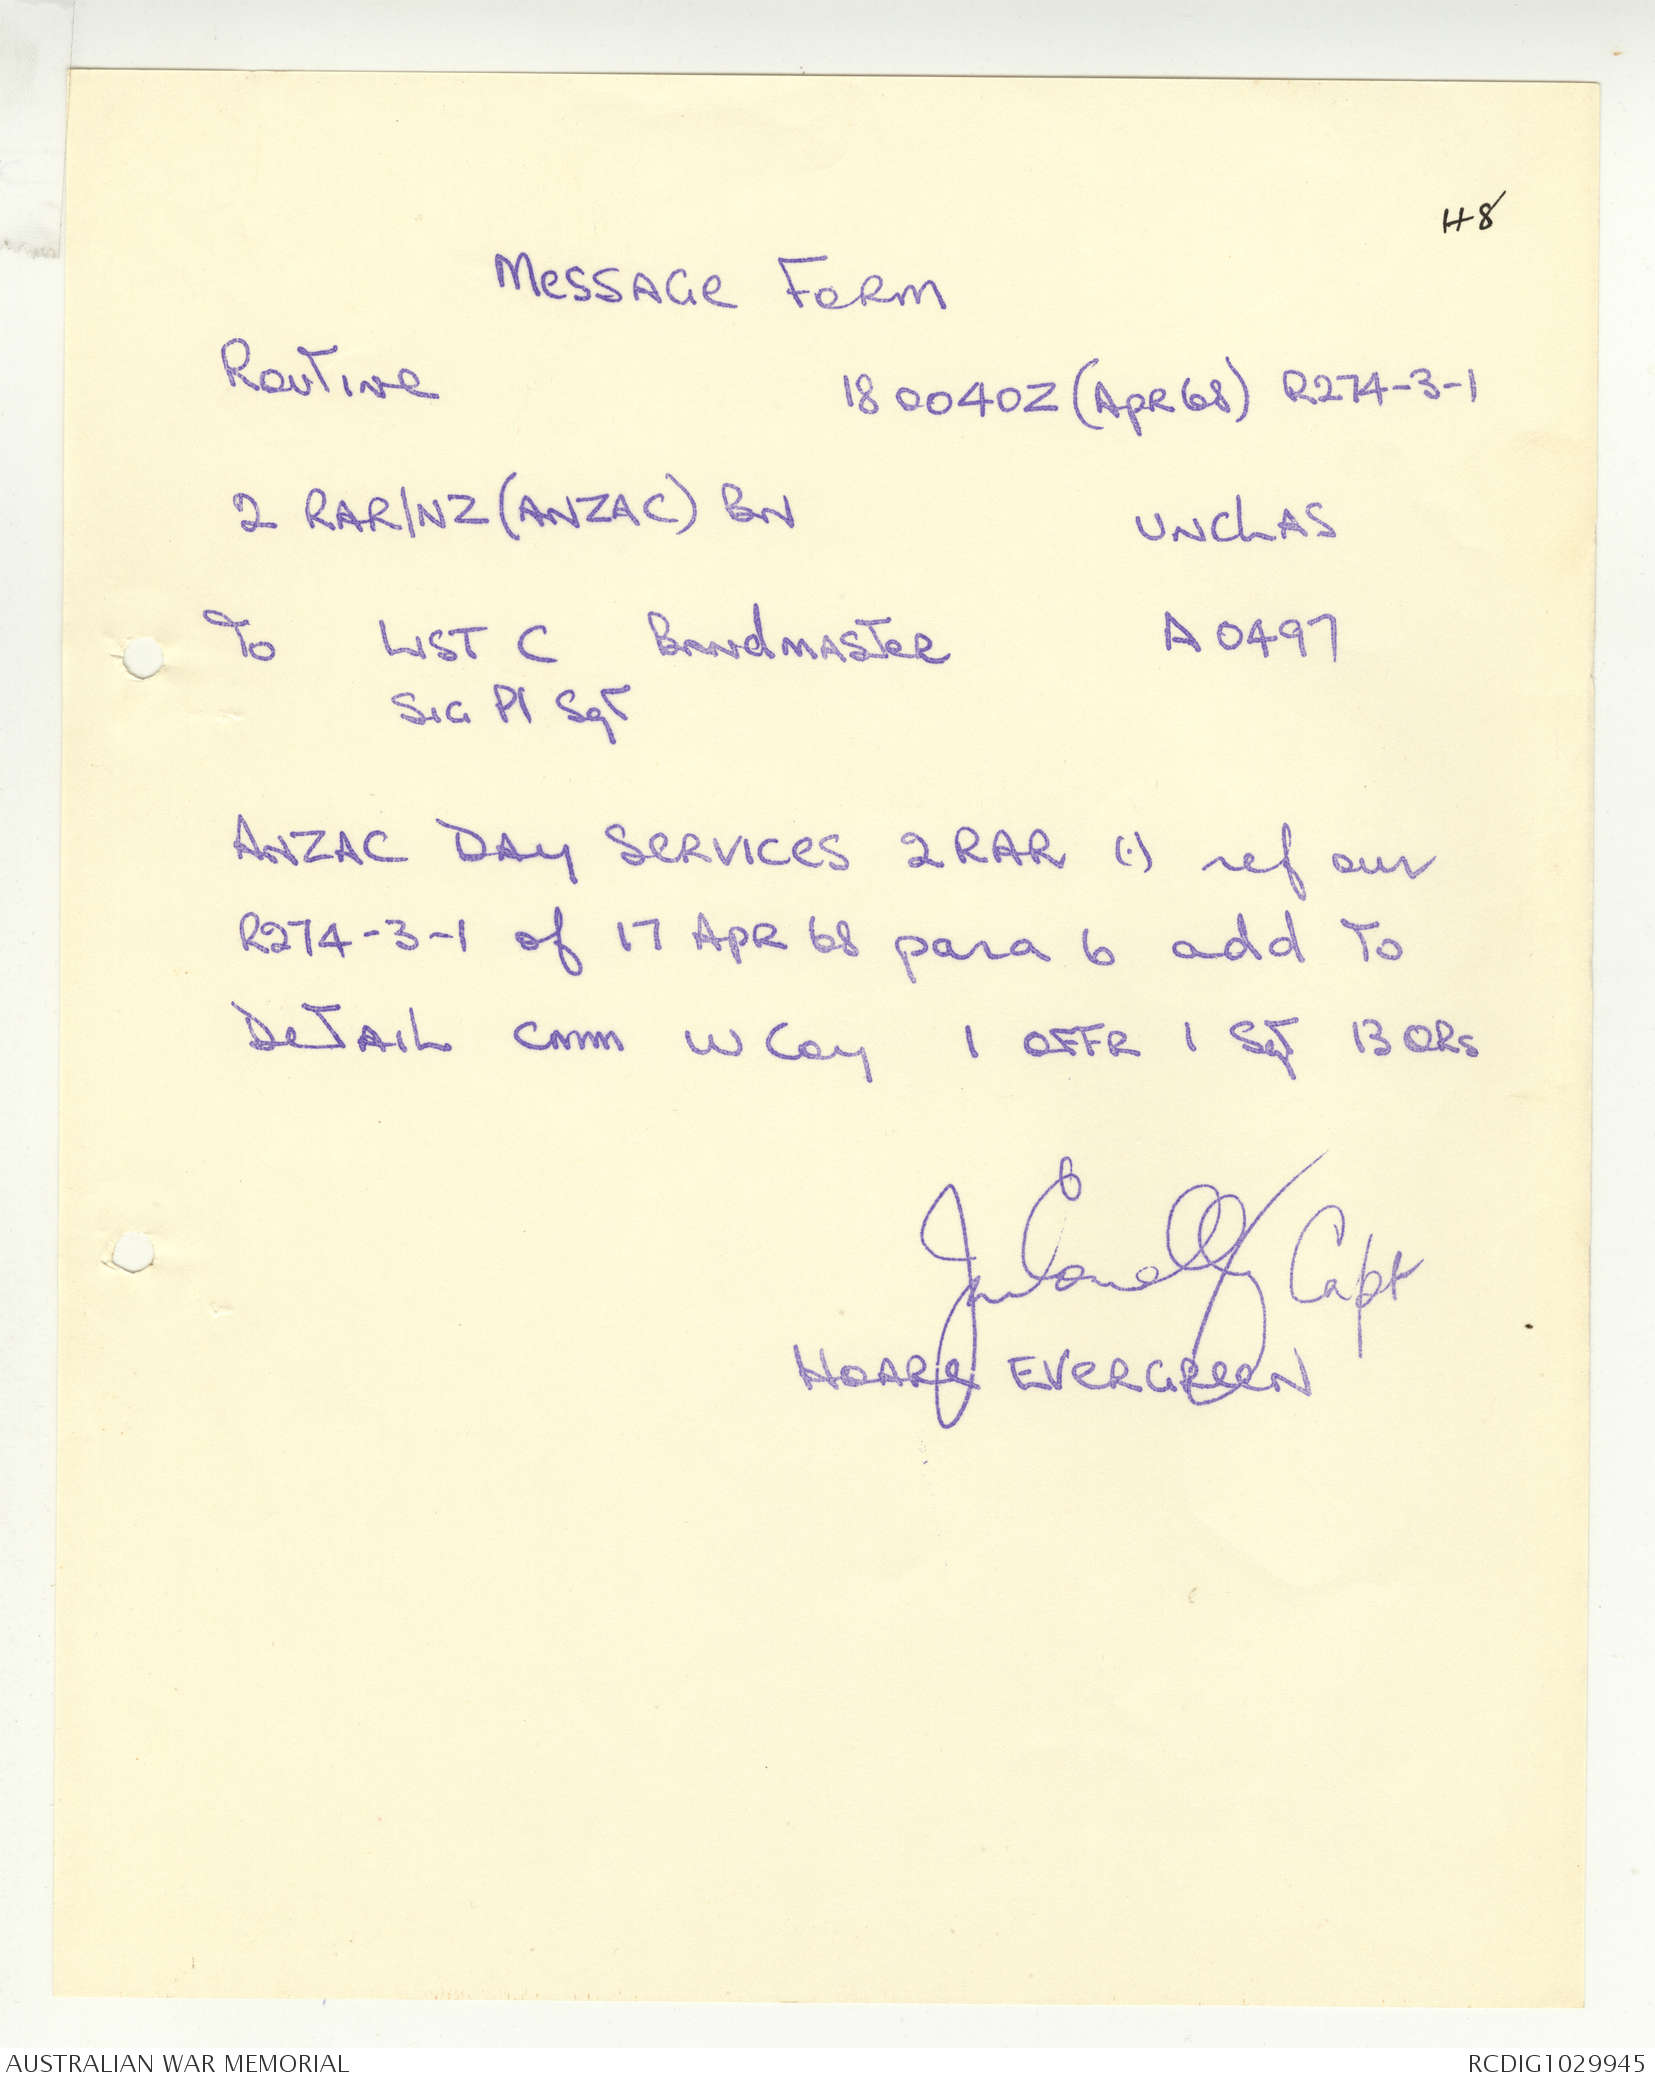 H8
Message Form
Routine 180040Z (Apr 68) R274-3-1
2 RAR/NZ (ANZAC) BN UNCLAS
To LIST C Bandmaster A0497
Sig Pl Sgt
ANZAC DAY Services 2RAR (.) ref our
R274-3-1 of 17 Apr 68 para 6 add to
Detail cmm W Coy 1 OFFR 1 Sgt 13 ORs
Capt
HOARE EVERGREEN
AUSTRALIAN WAR MEMORIAL RCDIG1029945